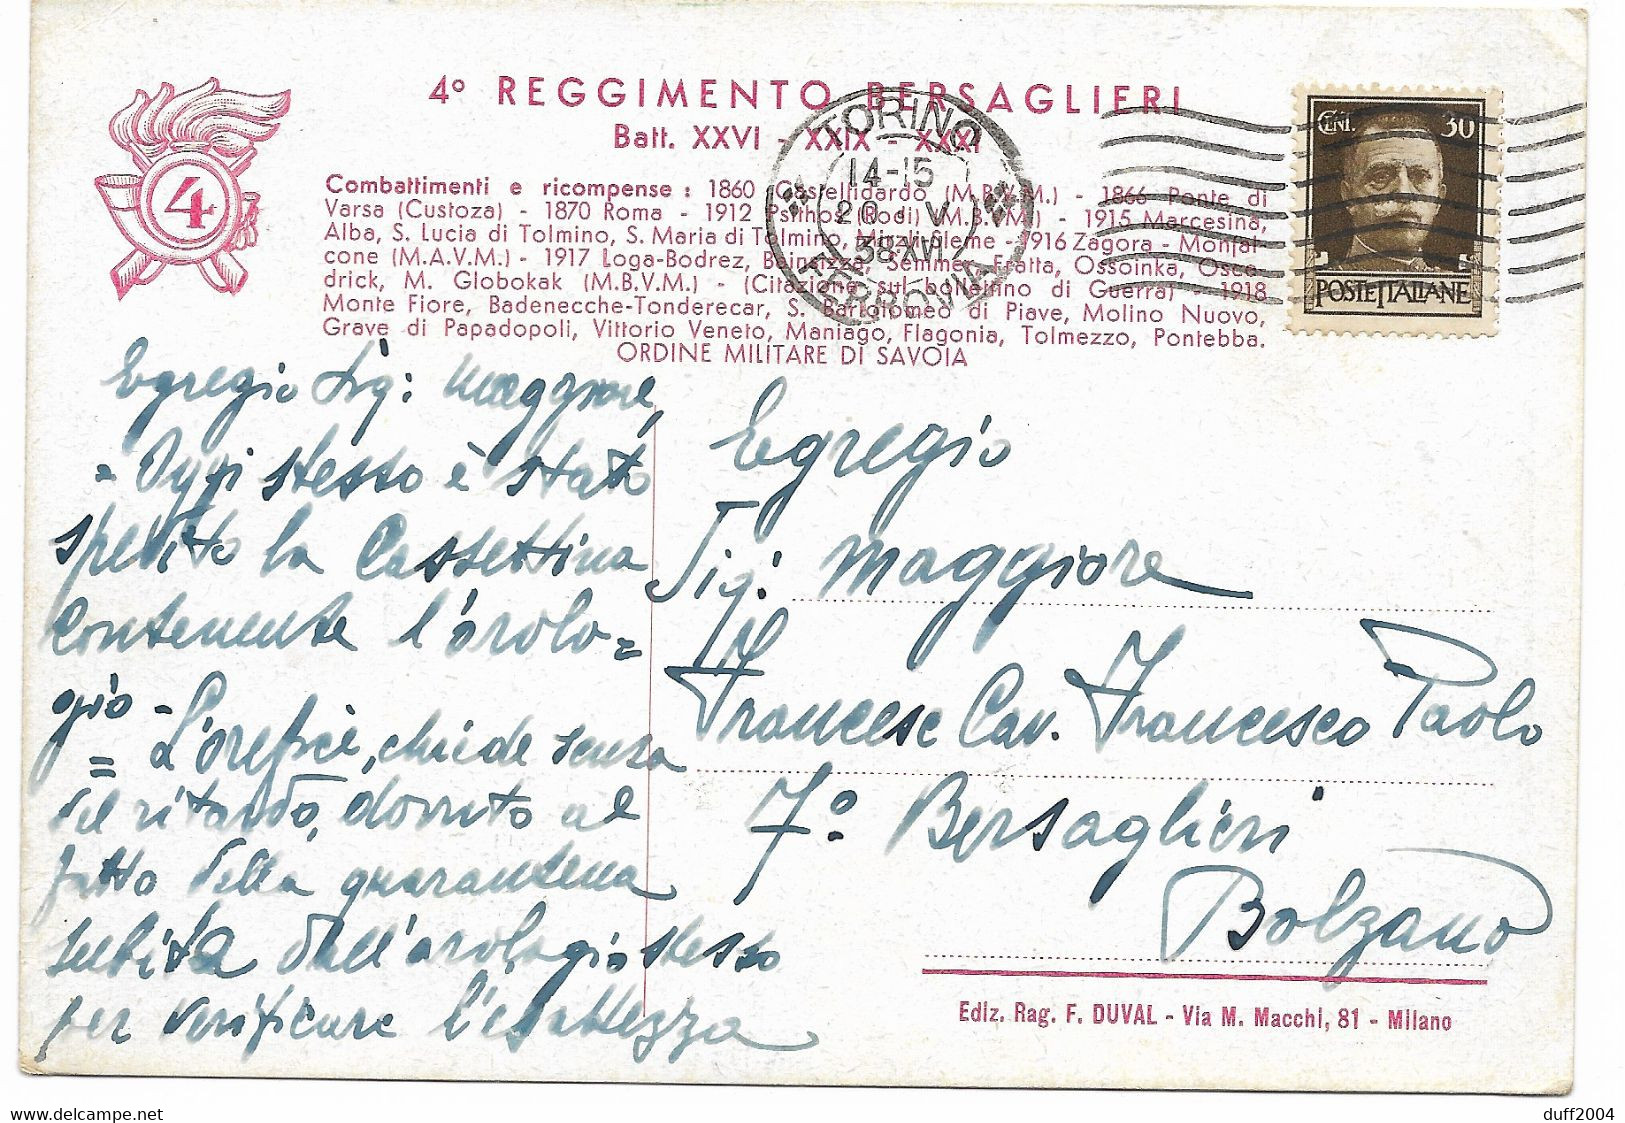 4° REGGIMENTO BERSAGLIERI
Batt. XXVI - XXIX - XXXI
4
Combattimenti e ricompense : 1860 Castelfidardo (M.B.V.M.) - 1866 Ponte di
Varsa (Custoza) - 1870 Roma - 1912 Psithos (Rodi) (M.B.V.M.) - 1915 Marcesina,
Alba, S. Lucia di Tolmino, S. Maria di Tolmino, Mirzli Sleme - 1916 Zagora - Monfal-
cone (M.A.V.M.) - 1917 Loga-Bodrez, Bainsizza, Semmer, Fratta, Ossoinka, Osce-
drick, M. Globokak (M.B.V.M.) - (Citazione sul bollettino di Guerra) - 1918
Monte Fiore, Badenecche-Tonderecar, S. Bartolomeo di Piave, Molino Nuovo,
Grave di Papadopoli, Vittorio Veneto, Maniago, Flagonia, Tolmezzo, Pontebba.
ORDINE MILITARE DI SAVOIA
TORINO
14-15
20 V
38 XVI
FERROVIA
CENT. 30
POSTE ITALIANE
Egregio Sig: Maggiore,
= Oggi stesso è stato
spedito la Cassettina
contenente l'orolo=
gio -
= L'orefice, chiede scusa
del ritardo, dovuto al
fatto della quarantena
subita dall'orologio stesso
per verificare l'esattezza
Egregio
Sig: Maggiore
Francese Cav. Francesco Paolo
7° Bersaglieri
Bolzano
Ediz. Rag. F. DUVAL - Via M. Macchi, 81 - Milano
delcampe.net
duff2004